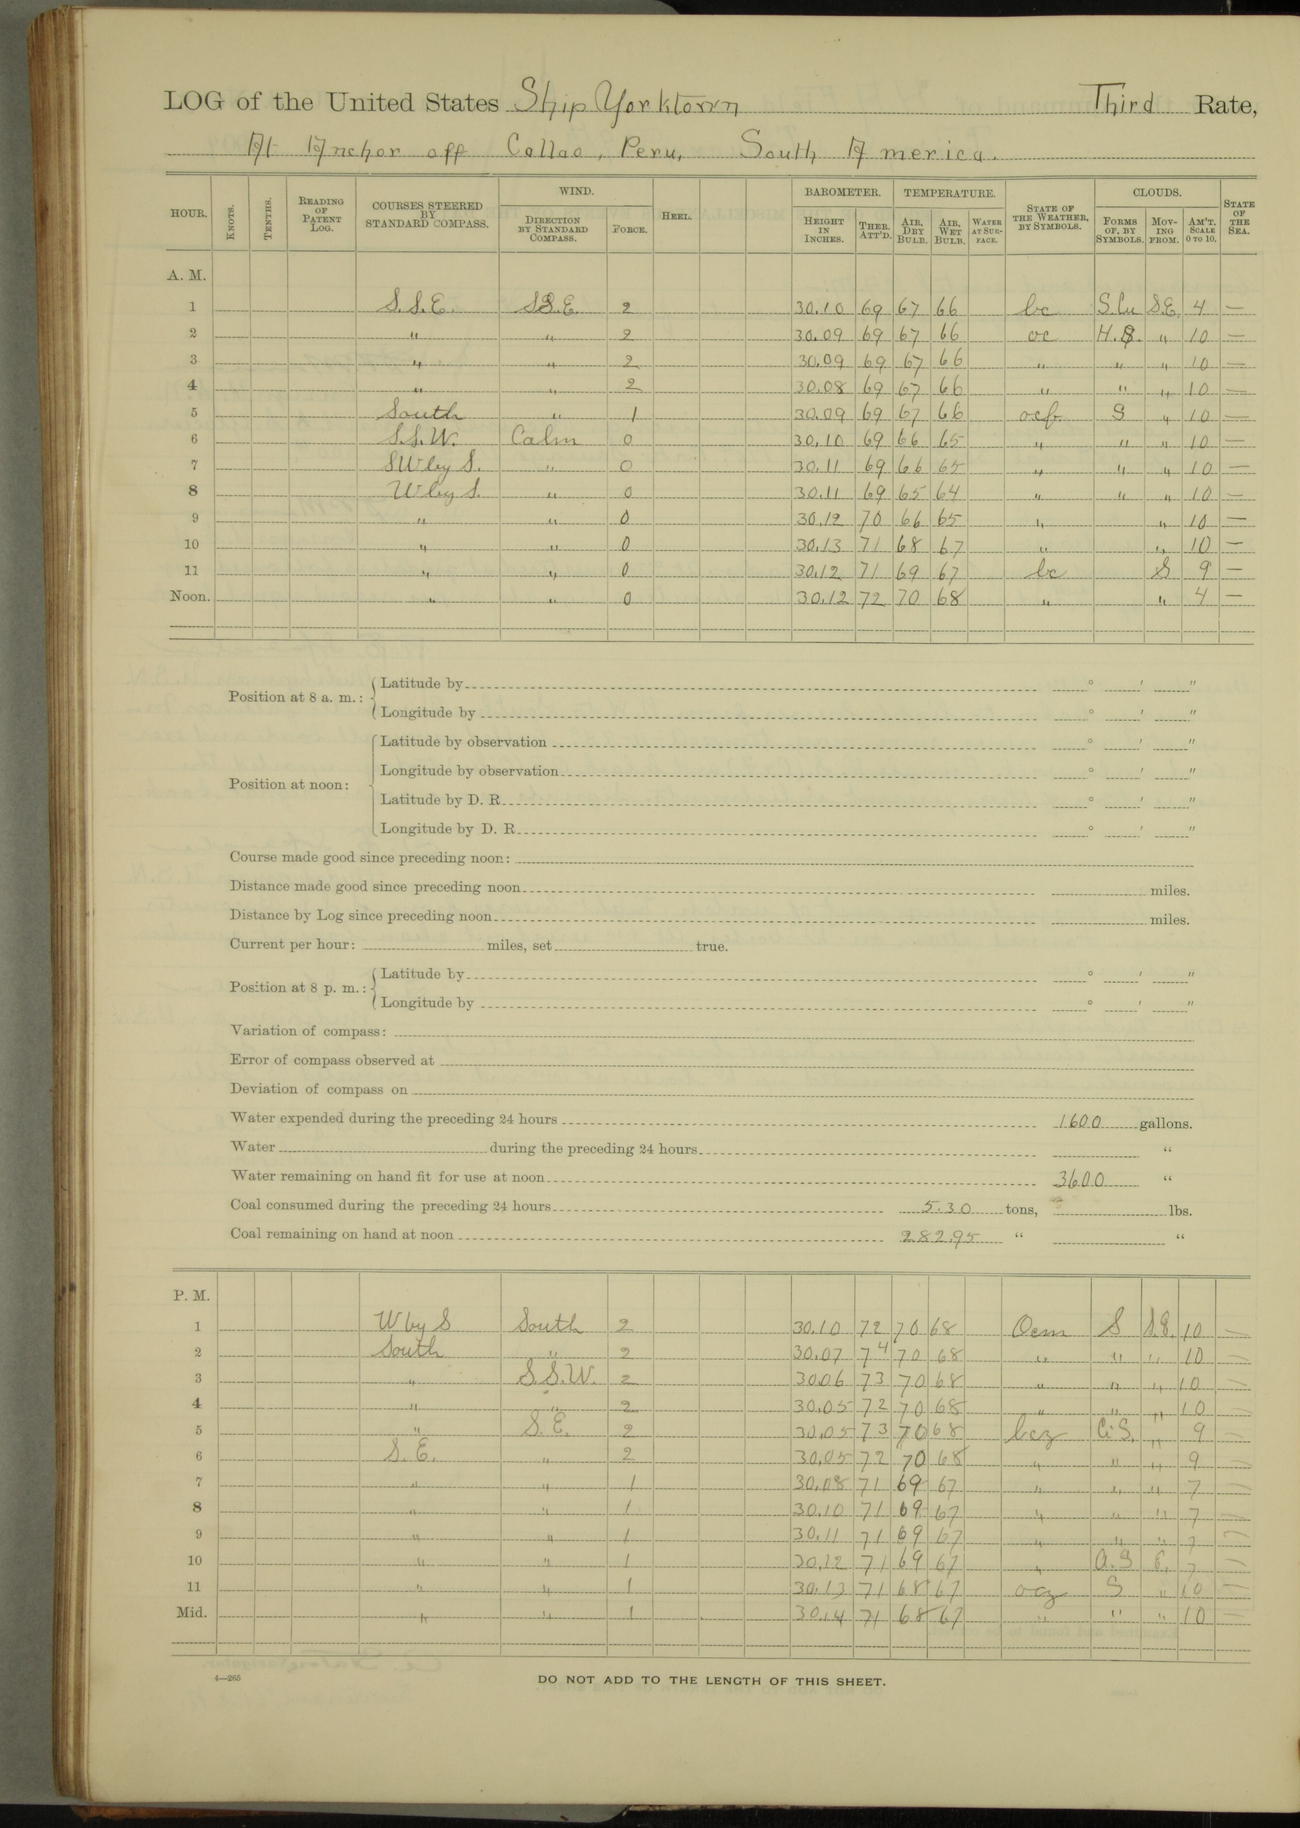 LOG of the United States Ship Yorktown Third Rate,
At Anchor off Callao, Peru, South America.
HOUR. KNOTS. TENTHS. READING OF PATENT LOG. COURSES STEERED BY STANDARD COMPASS. WIND. DIRECTION BY STANDARD COMPASS. FORCE. HEEL. BAROMETER. HEIGHT IN INCHES. THER. ATT'D. TEMPERATURE. AIR, DRY BULB. AIR, WET BULB. WATER AT SURFACE. STATE OF THE WEATHER, BY SYMBOLS. CLOUDS. FORMS OF, BY SYMBOLS. MOVING FROM. AM'T. SCALE 0 TO 10. STATE OF THE SEA.
A. M.
1 S.S.E. SSE 2 30.10 69 67 66 bc S.Cu S.E. 4 —
2 " " 2 30.09 69 67 66 oc H.S. " 10 —
3 " " 2 30.09 69 67 66 " " " 10 —
4 " " 2 30.08 69 67 66 " " " 10 —
5 South " 1 30.09 69 67 66 ocf S " 10 —
6 S.S.W. Calm 0 30.10 69 66 65 " " " 10 —
7 SWby S. " 0 30.11 69 66 65 " " " 10 —
8 Wby S. " 0 30.11 69 65 64 " " " 10 —
9 " " 0 30.12 70 66 65 " " 10 —
10 " " 0 30.13 71 68 67 " " 10 —
11 " " 0 30.12 71 69 67 bc S 9 —
Noon. " " 0 30.12 72 70 68 " " 4 —
Position at 8 a. m.: Latitude by ° ′ ″
Longitude by ° ′ ″
Position at noon: Latitude by observation ° ′ ″
Longitude by observation ° ′ ″
Latitude by D. R. ° ′ ″
Longitude by D. R. ° ′ ″
Course made good since preceding noon:
Distance made good since preceding noon miles.
Distance by Log since preceding noon miles.
Current per hour: miles, set true.
Position at 8 p. m.: Latitude by ° ′ ″
Longitude by ° ′ ″
Variation of compass:
Error of compass observed at
Deviation of compass on
Water expended during the preceding 24 hours 1600 gallons.
Water during the preceding 24 hours "
Water remaining on hand fit for use at noon 3600 "
Coal consumed during the preceding 24 hours 5.30 tons, lbs.
Coal remaining on hand at noon 282.95 " "
P. M.
1 W by S South 2 30.10 72 70 68 Ocm S S.E. 10 —
2 South " 2 30.07 74 70 68 " " " 10 —
3 " S.S.W. 2 30.06 73 70 68 " " " 10 —
4 " " 2 30.05 72 70 68 " " " 10 —
5 " S.E. 2 30.05 73 70 68 bcz Ci S. " 9 —
6 S.E. " 2 30.05 72 70 68 " " " 9 —
7 " " 1 30.08 71 69 67 " " " 7 —
8 " " 1 30.10 71 69 67 " " " 7 —
9 " " 1 30.11 71 69 67 " " " 7 —
10 " " 1 30.12 71 69 67 " a.S 7 —
11 " " 1 30.13 71 68 67 ocz S " 10 —
Mid. " " 1 30.14 71 68 67 " " " 10 —
4—265
DO NOT ADD TO THE LENGTH OF THIS SHEET.